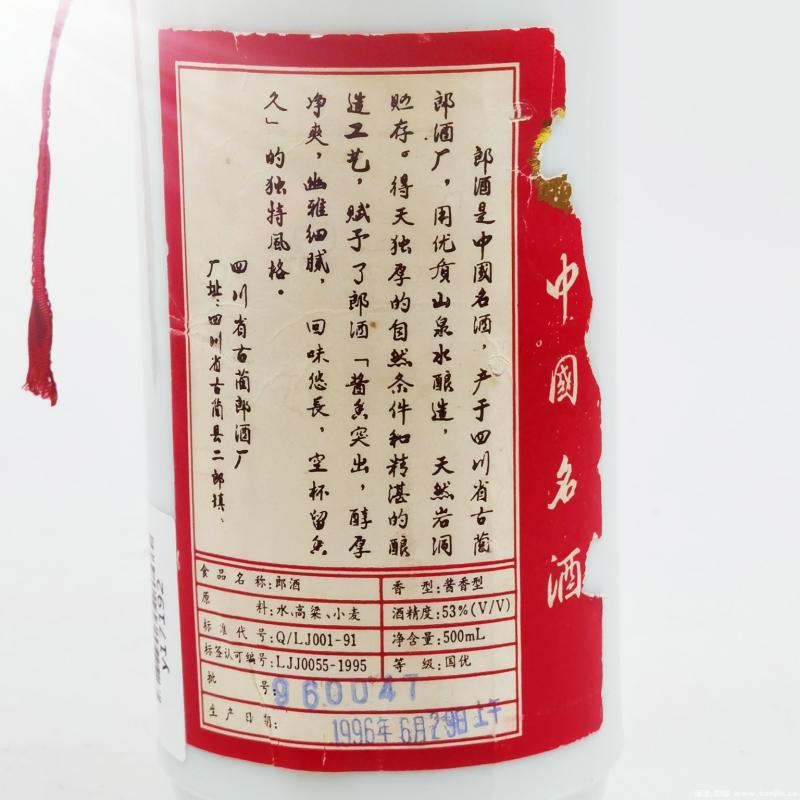 郎酒是中國名酒，产于四川省古蔺
郎酒厂，用优质山泉水酿造，天然岩洞
贮存。得天独厚的自然条件和精湛的酿
造工艺，赋予了郎酒「酱香突出，醇厚
净爽，幽雅细腻，回味悠長，空杯留香
久」的独特风格。
四川省古蔺郎酒厂
厂址：四川省古蔺县二郎镇
中國名酒
食品名称：郎酒
香型：酱香型
原料：水、高粱、小麦
酒精度：53%(V/V)
标准代号：Q/LJ001-91
净含量：500mL
标签认可编号：LJJ0055-1995
等级：国优
批号：960047
生产日期：1996年6月29日上午